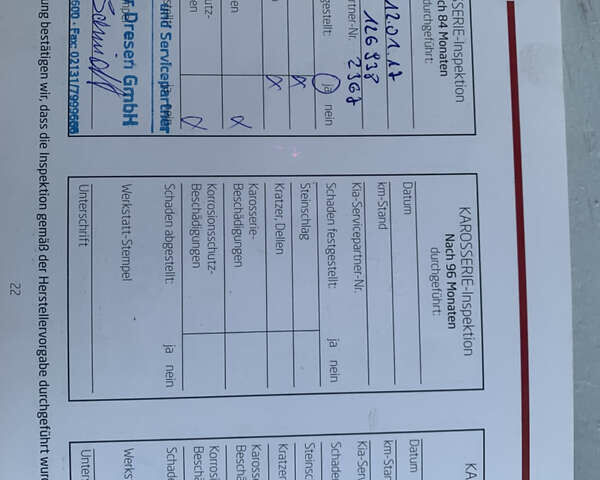 KAROSSERIE-Inspektion
Nach 84 Monaten
durchgeführt:
12.01.17
126938
Kia-Servicepartner-Nr. 2367
festgestellt: ja nein
x
x
x
x
und Servicepartner
Dresen GmbH
Fax: 02131/7999666
KAROSSERIE-Inspektion
Nach 96 Monaten
durchgeführt:
Datum
km-Stand
Kia-Servicepartner-Nr.
Schaden festgestellt: ja nein
Steinschlag
Kratzer, Dellen
Karosserie-
Beschädigungen
Korrosionsschutz-
Beschädigungen
Schaden abgestellt: ja nein
Werkstatt-Stempel
Unterschrift
Datum
km-Stan
Kia-Serv
Schaden
Steinsc
Kratzer
Karosse
Beschä
Korros
Beschä
Schade
Werks
Unters
ung bestätigen wir, dass die Inspektion gemäß der Herstellervorgabe durchgeführt wur
22